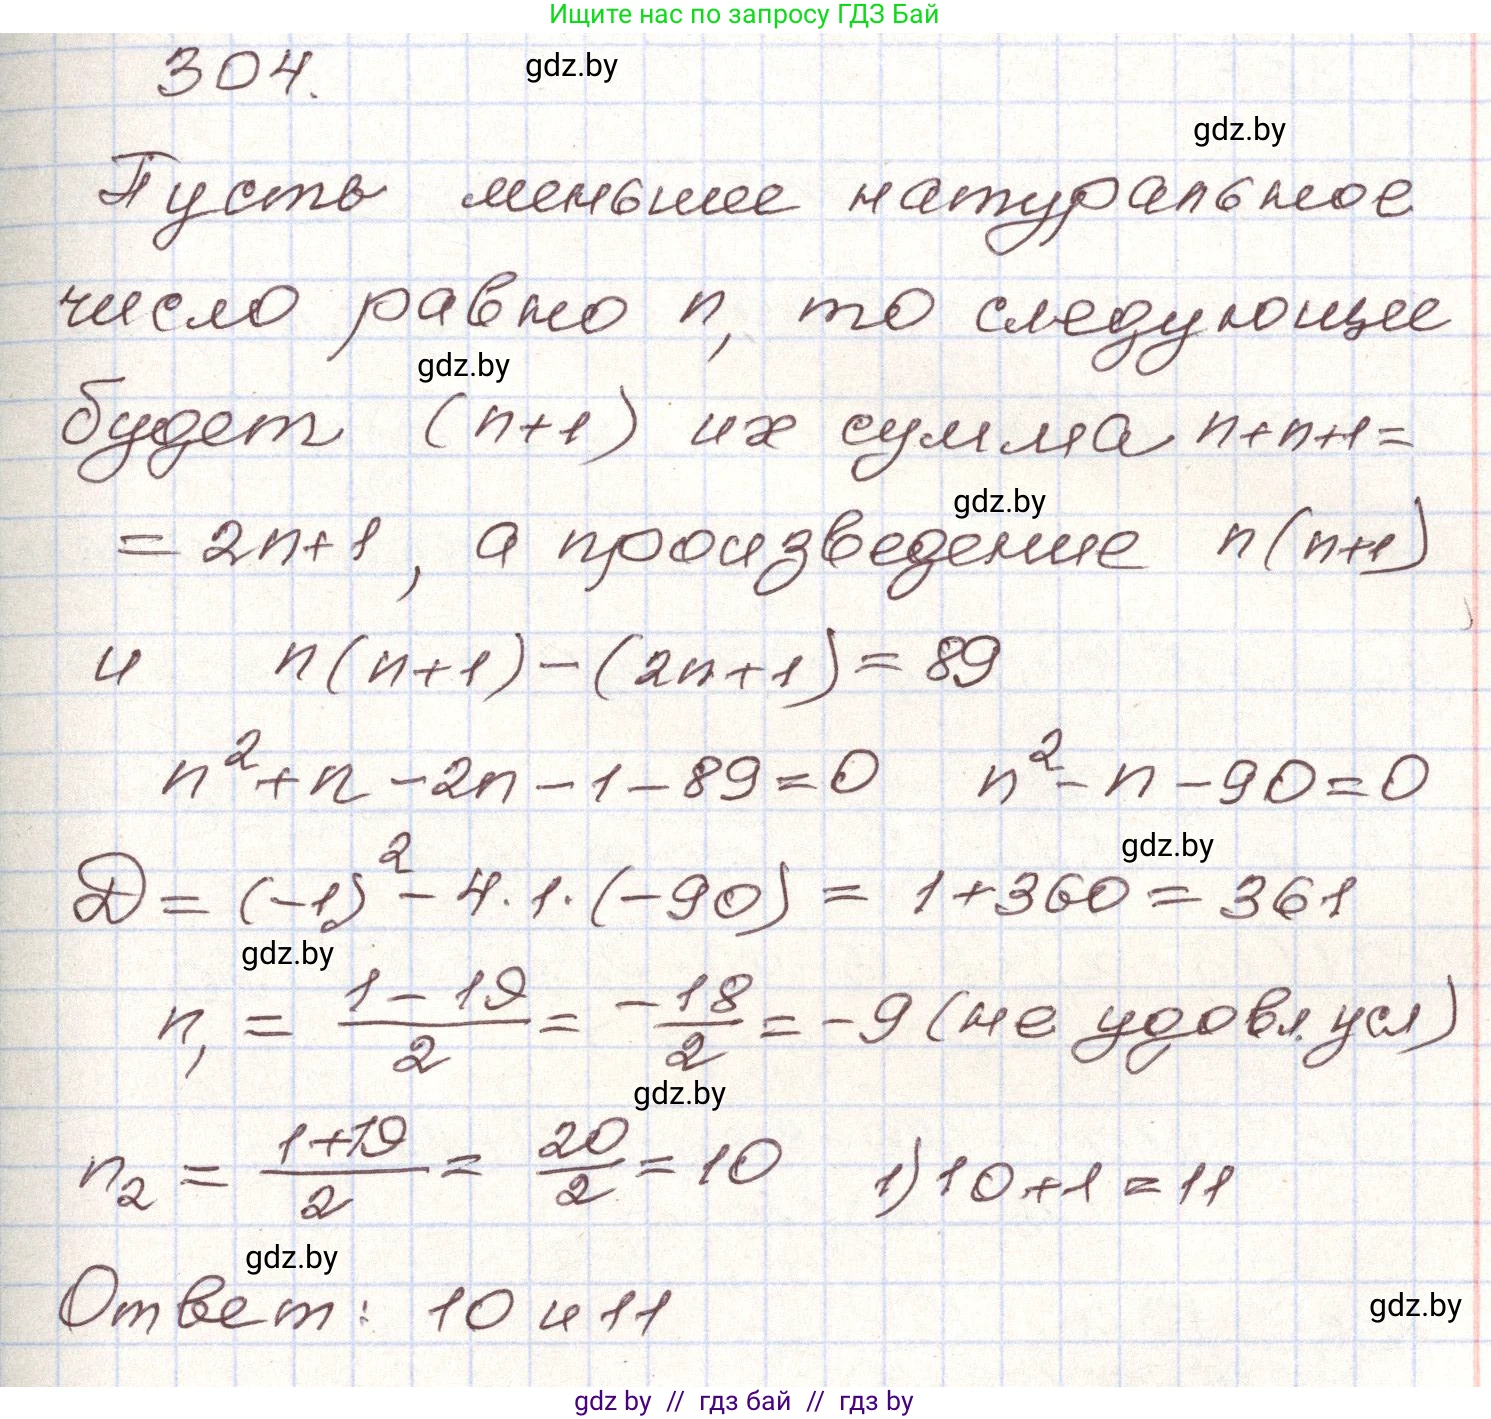 Ищите нас по запросу ГДЗ Бай
304.
gdz.by
gdz.by
Пусть меньшее натуральное
число равно n, то следующее
gdz.by
будет (n+1) их сумма n+n+1=
gdz.by
= 2n+1, а произведение n(n+1)
и n(n+1)-(2n+1)=89
n²+n-2n-1-89=0 n²-n-90=0
gdz.by
Д=(-1)²-4·1·(-90)=1+360=361
gdz.by
n₁ = (1-19)/2 = -18/2 = -9 (не удовл. усл)
gdz.by
n₂ = (1+19)/2 = 20/2 = 10 1) 10+1=11
gdz.by
Ответ: 10 и 11
gdz.by
gdz by // гдз бай // гдз by